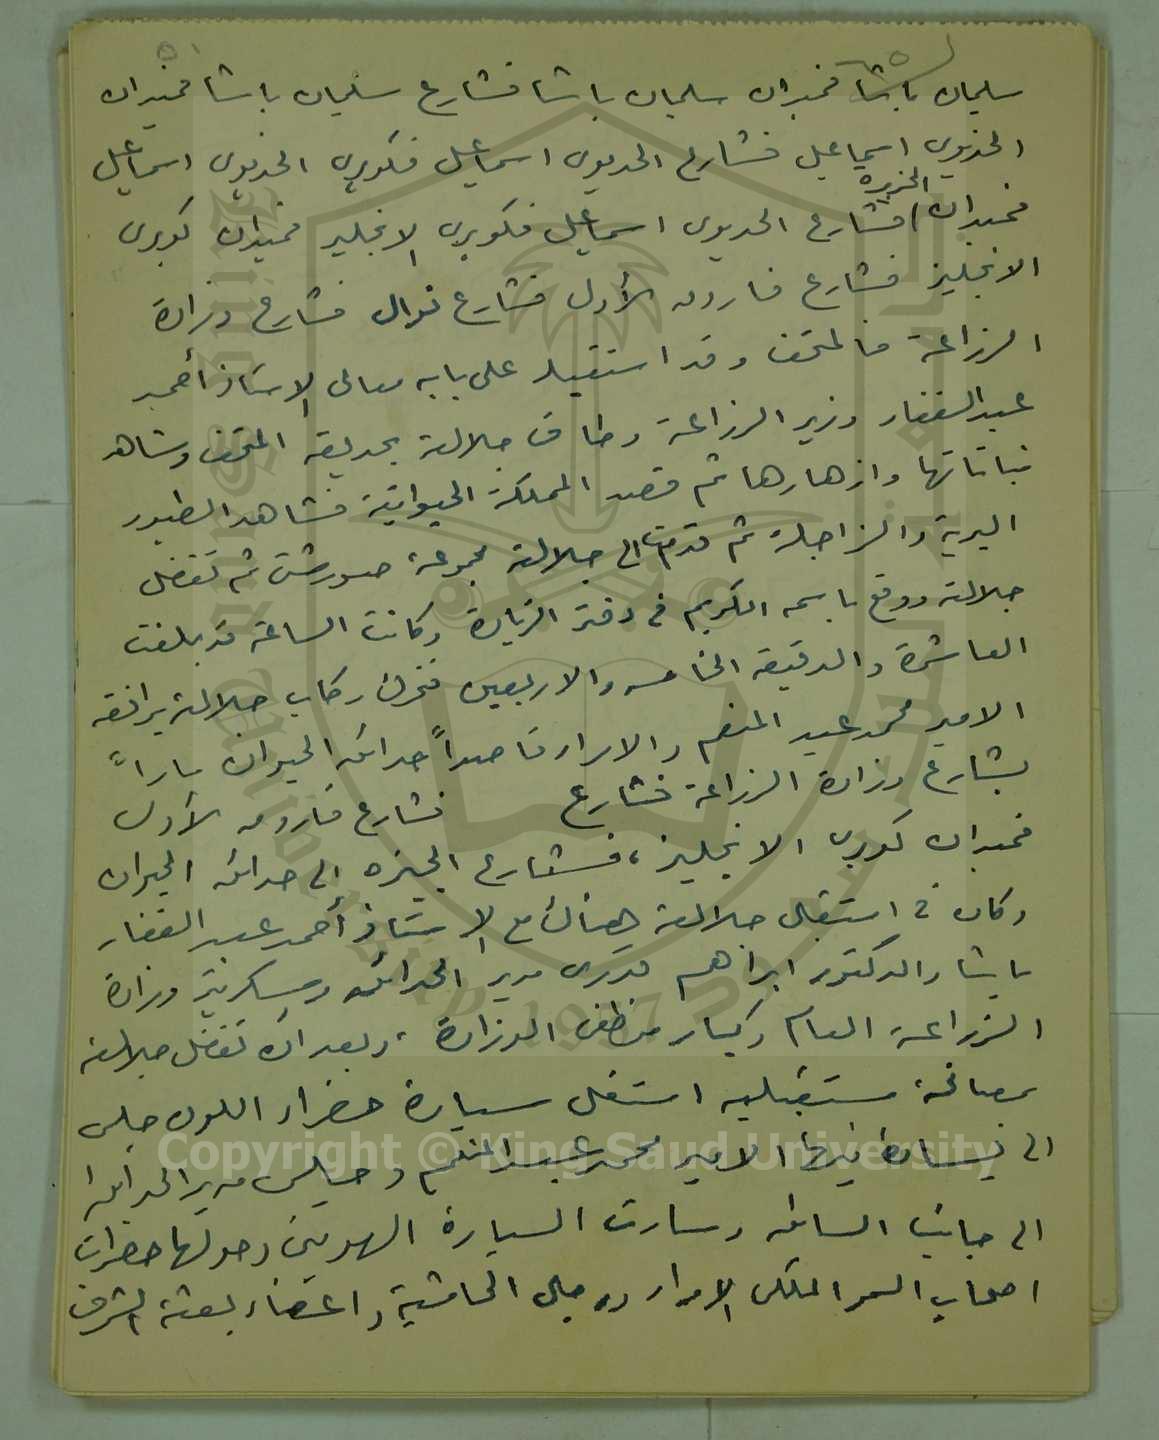 سليمان باشا فميدان سليمان باشا فشارع سليمان باشا فميدان
الخديوي اسماعيل فشارع الخديوى اسماعيل فكوبرى الخديوى اسماعيل
فميدان الجزيرة فشارع الخديوى اسماعيل فكوبرى الانجليز فميدان كوبرى
الانجليز فشارع فاروق الأول فشارع نوال فشارع وزارة
الزراعة فالمتحف وقد استقبله على بابه معالى الاستاذ أحمد
عبد الغفار وزير الزراعة وطاف جلالته بحديقة المتحف وشاهد
نباتاتها وازهارها ثم قصد المملكة الحيوانية فشاهد الطيور
البرية والزاجلة ثم قدمت الى جلالته مجموعة صور شتى ثم تفضل
جلالته ووقع باسمه الكريم فى دفتر الزيارة وكانت الساعة قد بلغت
العاشرة والدقيقة الخامسة والاربعين فتحرك ركاب جلالته يرافقه
الامير محمد عبد المنعم والامراء قاصداً حدائق الحيوان ماراً
بشارع وزارة الزراعة فشارع فشارع فاروق الأول
فميدان كوبرى الانجليز، فشارع الجيزه إلى حدائق الحيوان
وكان فى استقبال جلالته هناك مع الاستاذ أحمد عبد الغفار
باشا والدكتور ابراهيم قدرى مدير الحدائق وسكرتير وزارة
الزراعة العام وكبار موظفى الوزارة، وبعد ان تفضل جلالته
بمصافحة مستقبليه استقل سيارة خضراء اللون جلس
الى فيها الامير محمد عبد المنعم وجلس مدير الحدائق
الى جانب السائق وسارت السيارة الهوينى وحولها حضرات
اصحاب السمو الملكى الامراء ورجال الحاشية واعضاء بعثة الشرف
Copyright © King Saud University
1957